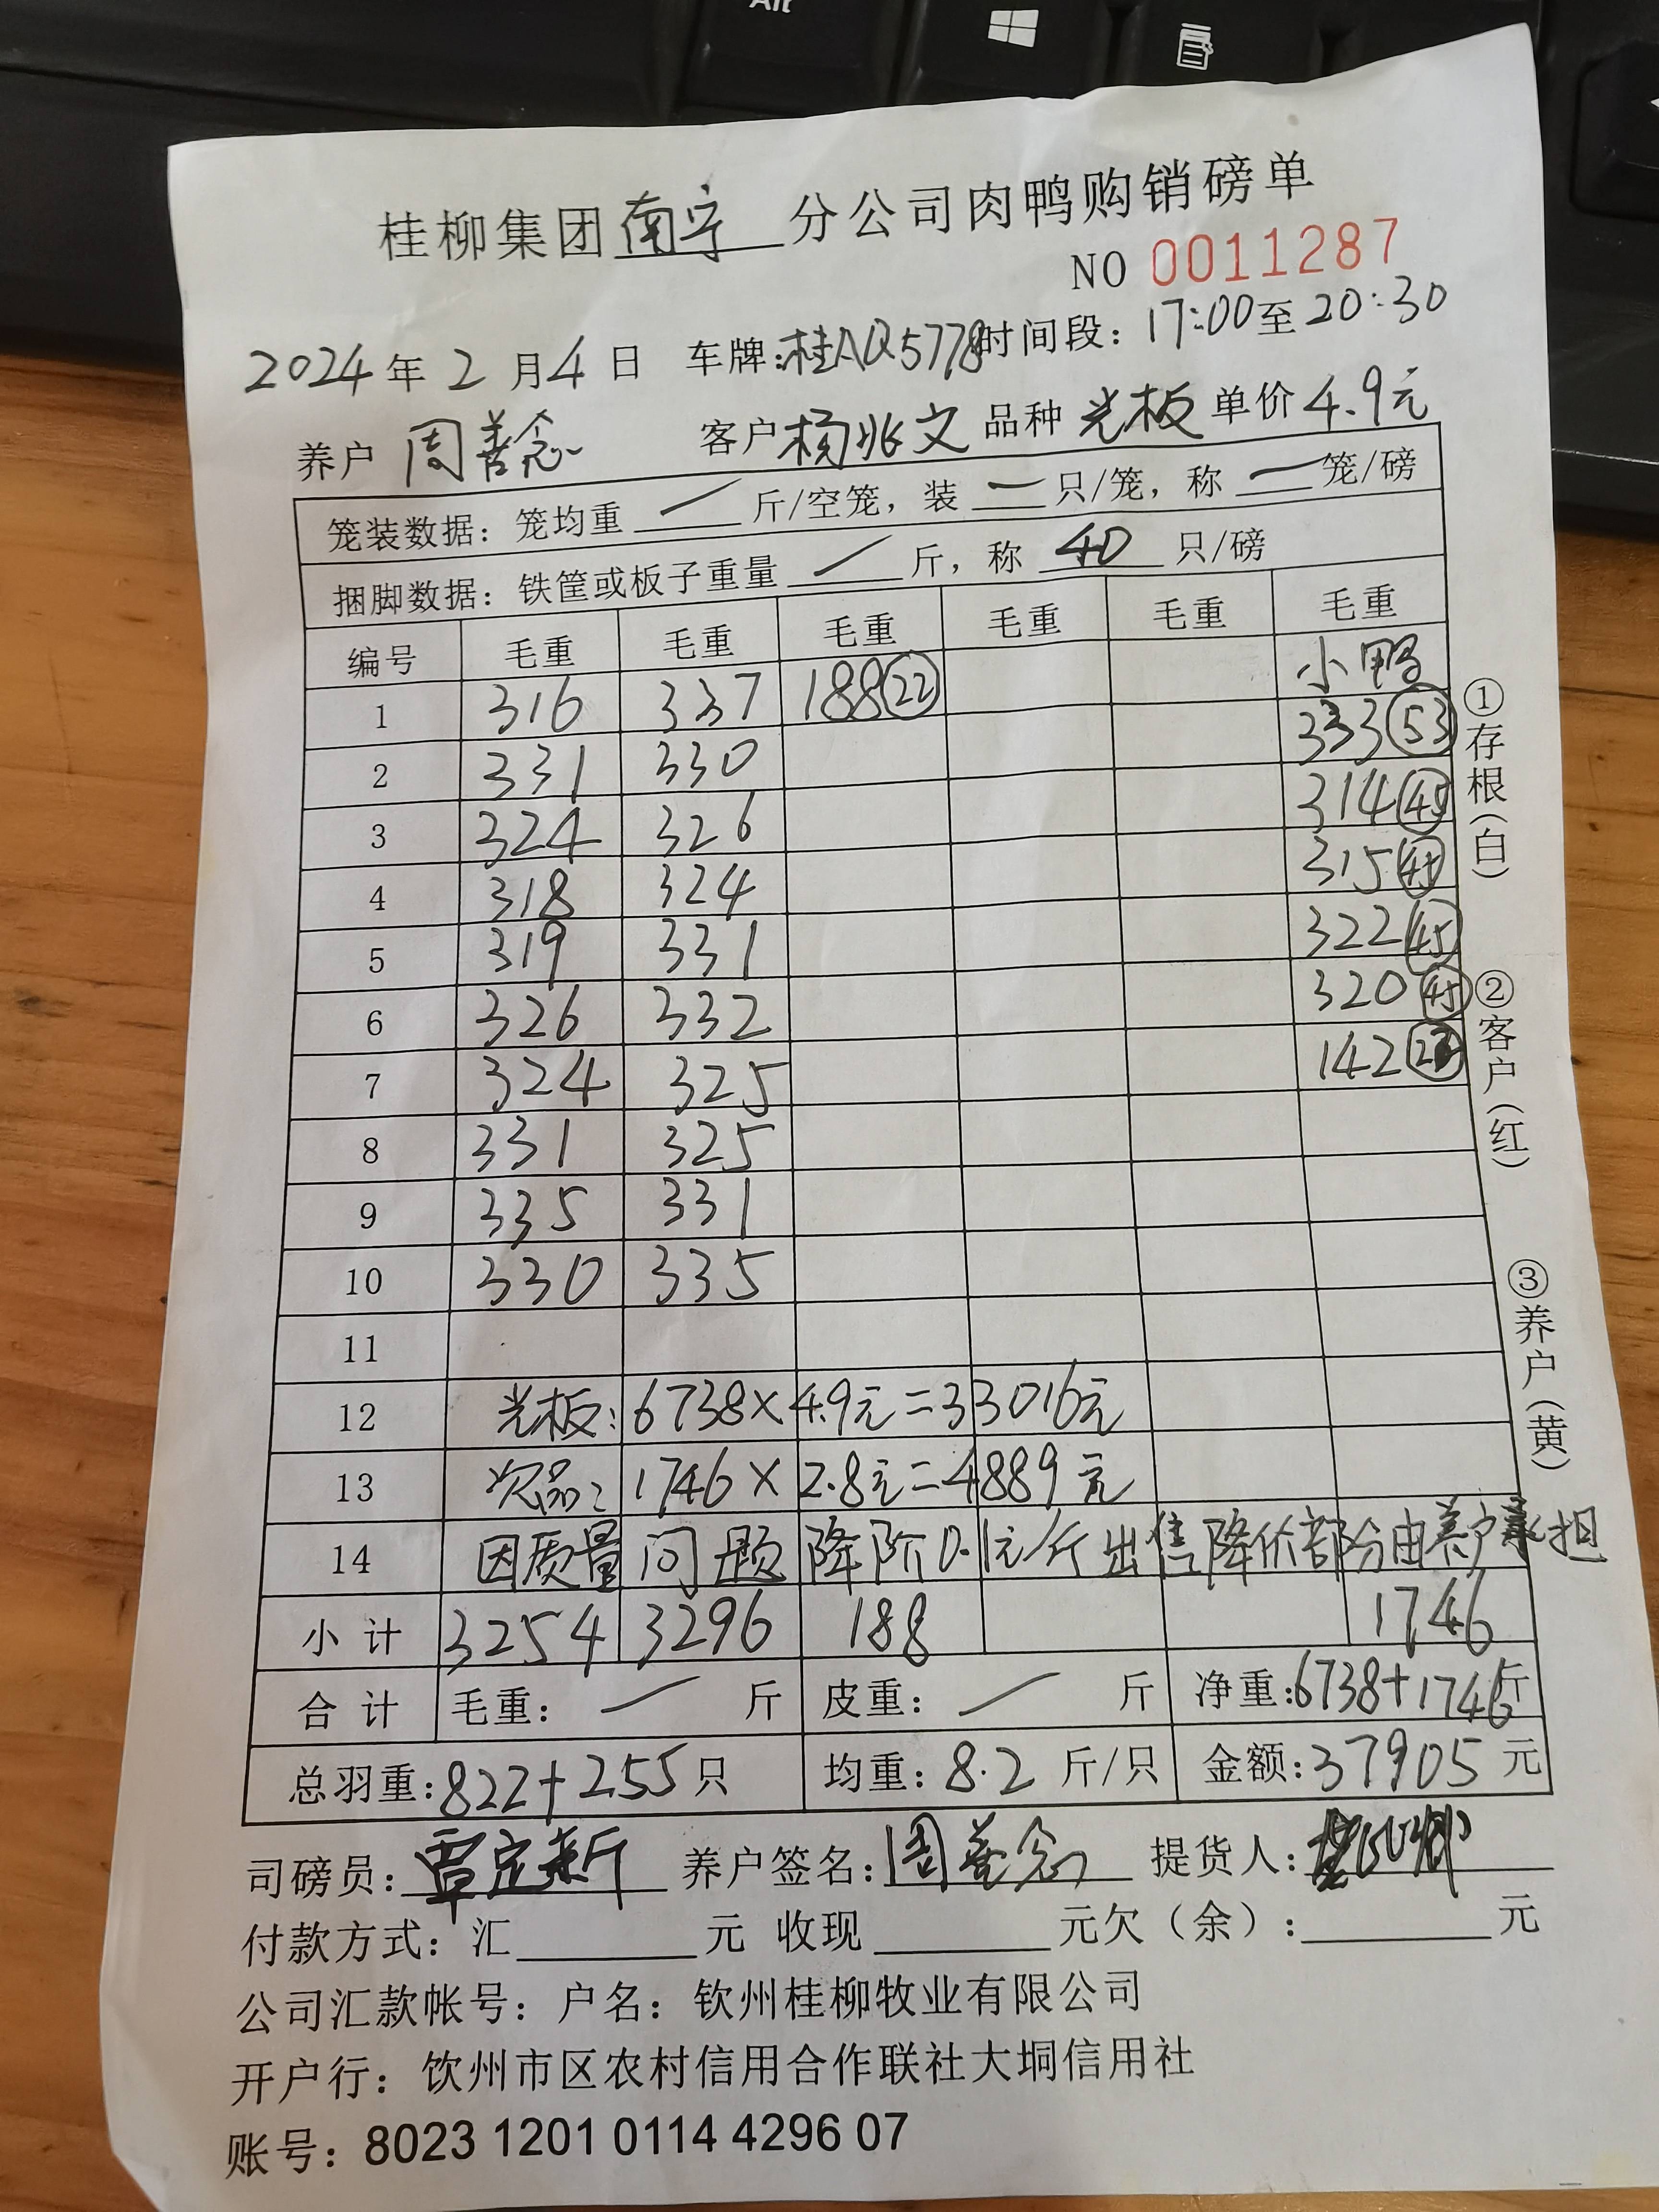 Alt
桂柳集团南宁分公司肉鸭购销磅单
NO 0011287
2024年2月4日 车牌:桂AQ5778 时间段:17:00至20:30
养户 周善念 客户 杨兆文 品种 光板 单价 4.9元
笼装数据:笼均重 / 斤/空笼,装 一 只/笼,称 一 笼/磅
捆脚数据:铁筐或板子重量 / 斤,称 40 只/磅
编号 毛重 毛重 毛重 毛重 毛重 毛重
小鸭
1 316 337 188(22) 333(53)
2 331 330 314(45)
3 324 326 315(45)
4 318 324 322(45)
5 319 331 320(45)
6 326 332 142
7 324 325
8 331 325
9 335 331
10 330 335
11
12 光板:6738×4.9元=33016元
13 次品:1746×2.8元=4889元
14 因质量问题降阶0.1元/斤出售降价部分由养户承担
小计 3254 3296 188 1746
合计 毛重: / 斤 皮重: / 斤 净重:6738+1746斤
总羽重:822+255只 均重:8.2斤/只 金额:37905元
司磅员:覃定新 养户签名:周善念 提货人:
付款方式:汇______元 收现______元欠(余):______元
公司汇款帐号:户名:钦州桂柳牧业有限公司
开户行:钦州市区农村信用合作联社大垌信用社
账号:8023 1201 0114 4296 07
①存根(白)
②客户(红)
③养户(黄)